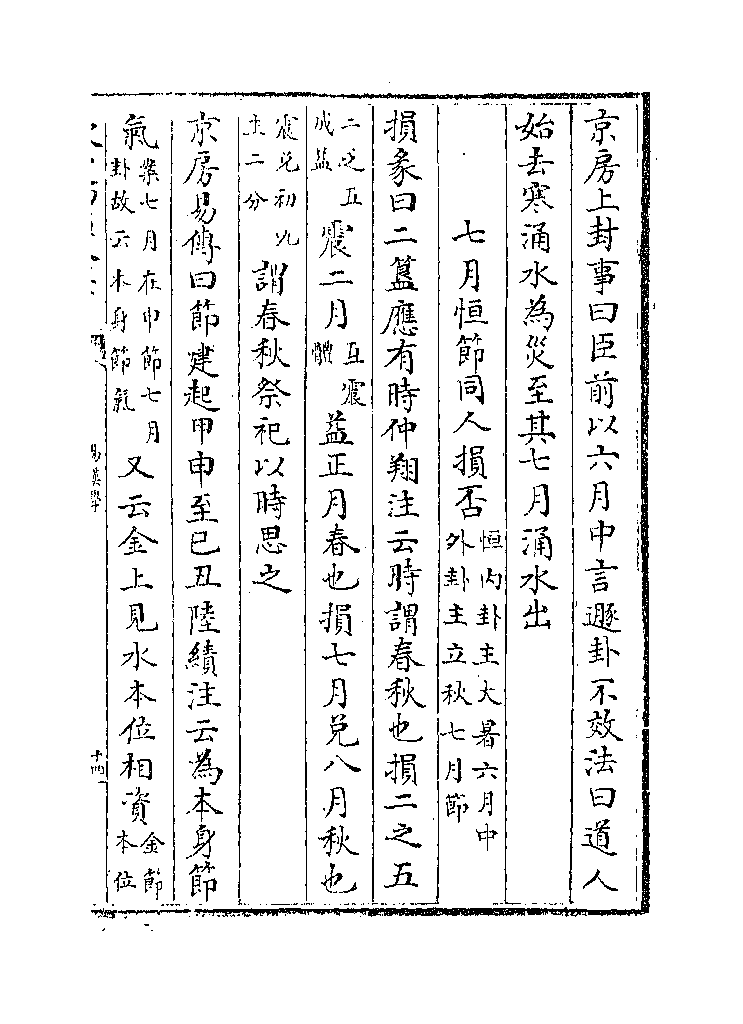 京房上封事曰臣前以六月中言遯卦不效法曰道人
始去寒涌水為災至其七月涌水出
七月恒節同人損否恒内卦主大暑六月中外卦主立秋七月節
損彖曰二簋應有時仲翔注云時謂春秋也損二之五
二之五成益震二月互震體益正月春也損七月兌八月秋也
震兌初九主二分謂春秋祭祀以時思之
京房易傳曰節建起甲申至已丑陸績注云為本身節
氣案七月在申節七月卦故云本身節氣又云金上見水本位相資金節本位
易漢學
十四